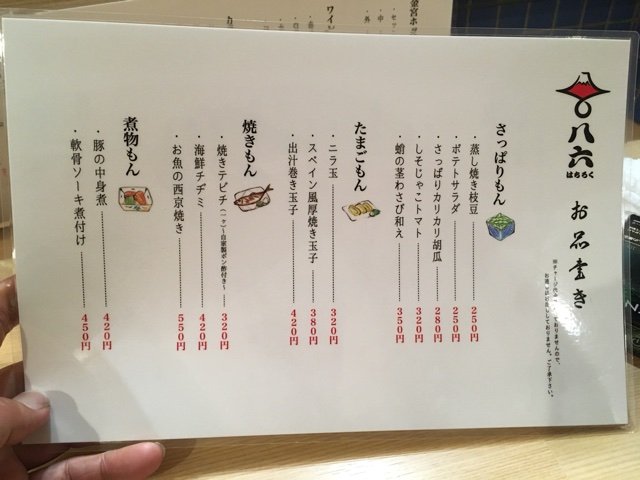 八六
はちろく
お品書き
さっぱりもん
・蒸し焼き枝豆 250円
・ポテトサラダ 250円
・さっぱりカリカリ胡瓜 280円
・しそじゃこトマト 320円
・蛸の茎わさび和え 350円
たまごもん
・ニラ玉 320円
・スペイン風厚焼き玉子 380円
・出汁巻き玉子 420円
焼きもん
・焼きテビチ(二ケ)〜自家製ポン酢付き〜 320円
・海鮮チヂミ 420円
・お魚の西京焼き 550円
煮物もん
・豚の中身煮 420円
・軟骨ソーキ煮付け 450円